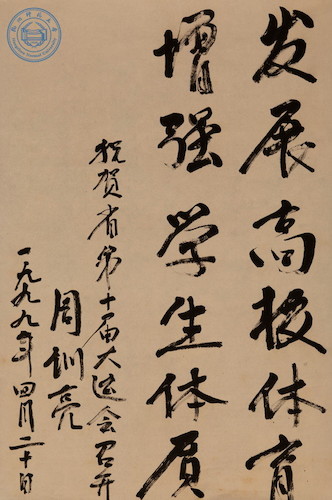 发展高校体育
增强学生体质
祝贺省第十届大运会召开
周训亮
一九九九年四月二十日